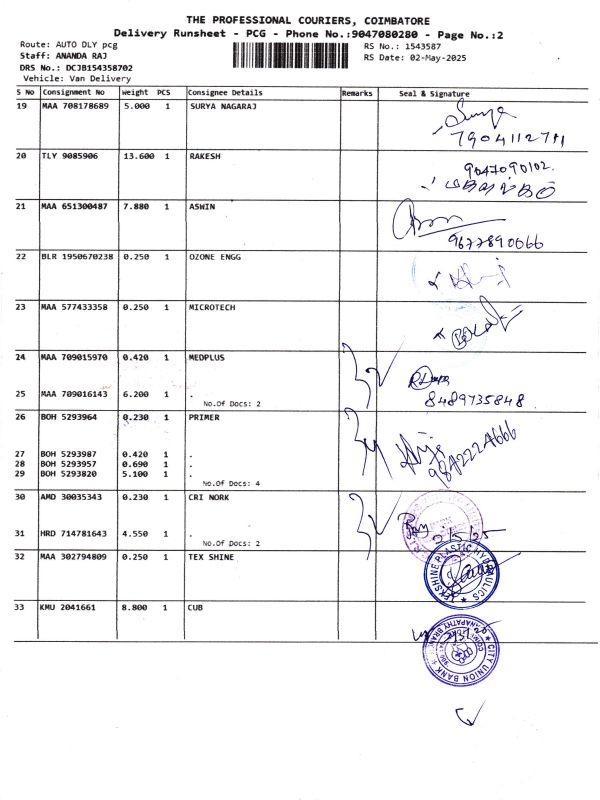 THE PROFESSIONAL COURIERS, COIMBATORE
Delivery Runsheet - PCG - Phone No.:9047080280 - Page No.:2
Route: AUTO DLY pcg RS No.: 1543587
Staff: ANANDA RAJ RS Date: 02-May-2025
DRS No.: DCJB154358702
Vehicle: Van Delivery
S No Consignment No Weight PCS Consignee Details Remarks Seal & Signature
19 MAA 708178689 5.000 1 SURYA NAGARAJ Surya
7904112711
20 TLY 9085906 13.600 1 RAKESH 9047090102.
21 MAA 651300487 7.880 1 ASWIN
9677890066
22 BLR 1950670238 0.250 1 OZONE ENGG
23 MAA 577433358 0.250 1 MICROTECH
24 MAA 709015970 0.420 1 MEDPLUS
25 MAA 709016143 6.200 1 . 8489735848
No.Of Docs: 2
26 BOH 5293964 0.230 1 PRIMER
27 BOH 5293987 0.420 1 .
28 BOH 5293957 0.690 1 .
29 BOH 5293820 5.100 1 .
No.Of Docs: 4
30 AMD 30035343 0.230 1 CRI NORK
31 HRD 714781643 4.550 1 . 2/5/25
No.Of Docs: 2
32 MAA 302794809 0.250 1 TEX SHINE
EKSHINE PLASTIC HYDRAULICS
33 KMU 2041661 8.800 1 CUB
CITY UNION BANK